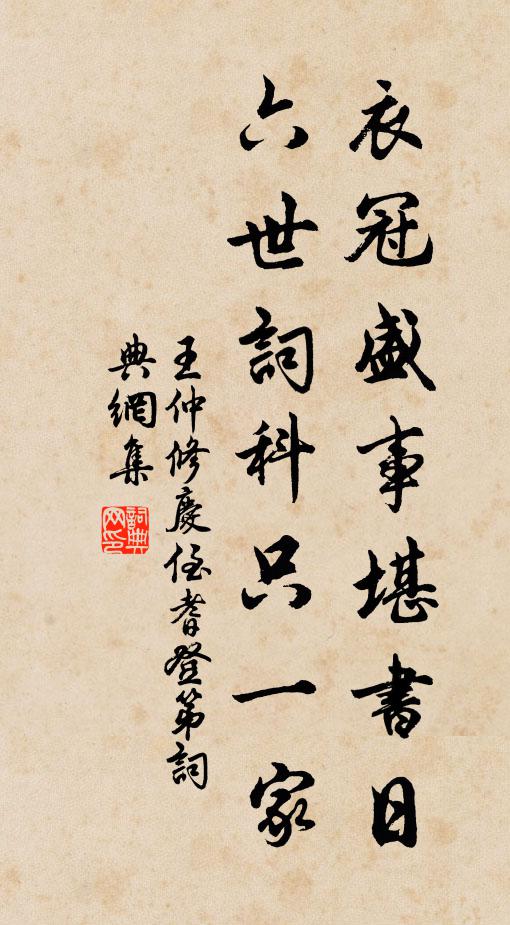 衣冠盛事堪書日
六世詞科只一家
王仲修慶侄耆登第詞
典網集
詞典網印